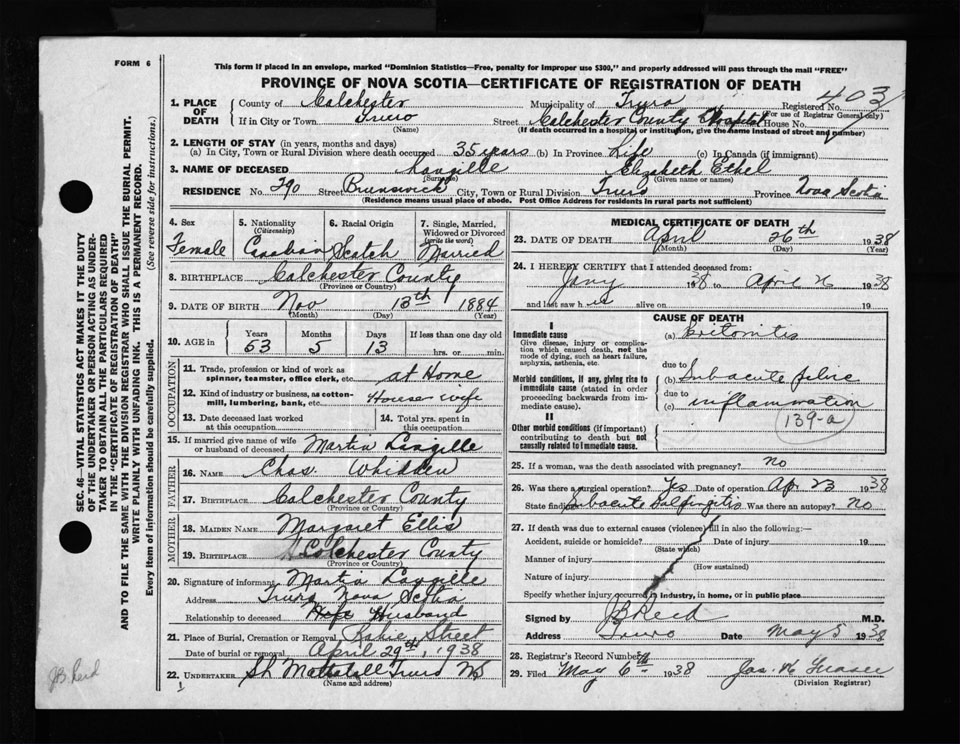 FORM 6
This form if placed in an envelope, marked "Dominion Statistics—Free, penalty for improper use $300," and properly addressed will pass through the mail "FREE"
PROVINCE OF NOVA SCOTIA—CERTIFICATE OF REGISTRATION OF DEATH
1. PLACE OF DEATH
County of Colchester Municipality of Truro Registered No. 403
(For use of Registrar General only)
If in City or Town Truro Street Colchester County Hospital House No.
(Name) (If death occurred in a hospital or institution, give the name instead of street and number)
2. LENGTH OF STAY (in years, months and days)
(a) In City, Town or Rural Division where death occurred 35 years (b) In Province Life (c) In Canada (if immigrant)
3. NAME OF DECEASED Langille Elizabeth Ethel
(Surname) (Given name or names)
RESIDENCE No. 290 Street Brunswick City, Town or Rural Division Truro Province Nova Scotia
(Residence means usual place of abode. Post Office Address for residents in rural parts not sufficient)
4. Sex Female
5. Nationality (Citizenship) Canadian
6. Racial Origin Scotch
7. Single, Married, Widowed or Divorced (write the word) Married
8. BIRTHPLACE Colchester County
(Province or County)
9. DATE OF BIRTH Nov 13th 1884
(Month) (Day) (Year)
10. AGE in Years 53 Months 5 Days 13 If less than one day old hrs. or min.
OCCUPATION
11. Trade, profession or kind of work as spinner, teamster, office clerk, etc. at Home
12. Kind of industry or business, as cotton-mill, lumbering, bank, etc. House wife
13. Date deceased last worked at this occupation
14. Total yrs. spent in this occupation
15. If married give name of wife or husband of deceased Martin Langille
FATHER
16. NAME Chas. Whidden
17. BIRTHPLACE Colchester County
(Province or County)
MOTHER
18. MAIDEN NAME Margaret Ellis
19. BIRTHPLACE Colchester County
(Province or County)
20. Signature of informant Martin Langille
Address Truro Nova Scotia
Relationship to deceased Husband
21. Place of Burial, Cremation or Removal Robie Street
Date of burial or removal April 29th, 1938
22. UNDERTAKER Truro NS
(Name and address)
MEDICAL CERTIFICATE OF DEATH
23. DATE OF DEATH April 26th 1938
(Month) (Day) (Year)
24. I HEREBY CERTIFY that I attended deceased from:
Jany 1938 to April 26 1938
and last saw h er alive on 19
CAUSE OF DEATH
I
Immediate cause
Give disease, injury or complication which caused death, not the mode of dying, such as heart failure, asphyxia, asthenia, etc.
(a) Peritonitis
due to
Morbid conditions, if any, giving rise to immediate cause (stated in order proceeding backwards from immediate cause).
(b) Subacute pelvic
due to
(c) inflammation
II
Other morbid conditions (if important) contributing to death but not causally related to immediate cause.
139-a
25. If a woman, was the death associated with pregnancy? No
26. Was there a surgical operation? Yes Date of operation Apr 23 1938
State findings Subacute Salpingitis Was there an autopsy? No
27. If death was due to external causes (violence) fill in also the following:—
Accident, suicide or homicide? Date of injury 19
(State which)
Manner of injury
(How sustained)
Nature of injury
Specify whether injury occurred in industry, in home, or in public place
Signed by JB Reid M.D.
Address Truro Date May 5 1938
28. Registrar's Record Number
29. Filed May 6th 1938 Jas. W. Fraser
(Division Registrar)
SEC. 46—VITAL STATISTICS ACT MAKES IT THE DUTY
OF THE UNDERTAKER OR PERSON ACTING AS UNDER-
TAKER TO OBTAIN ALL THE PARTICULARS REQUIRED
IN THE "CERTIFICATE OF REGISTRATION OF DEATH"
AND TO FILE THE SAME WITH THE DIVISION REGISTRAR WHO SHALL ISSUE THE BURIAL PERMIT.
WRITE PLAINLY WITH UNFADING INK. THIS IS A PERMANENT RECORD.
Every item of information should be carefully supplied. (See reverse side for instructions.)
JB Reid